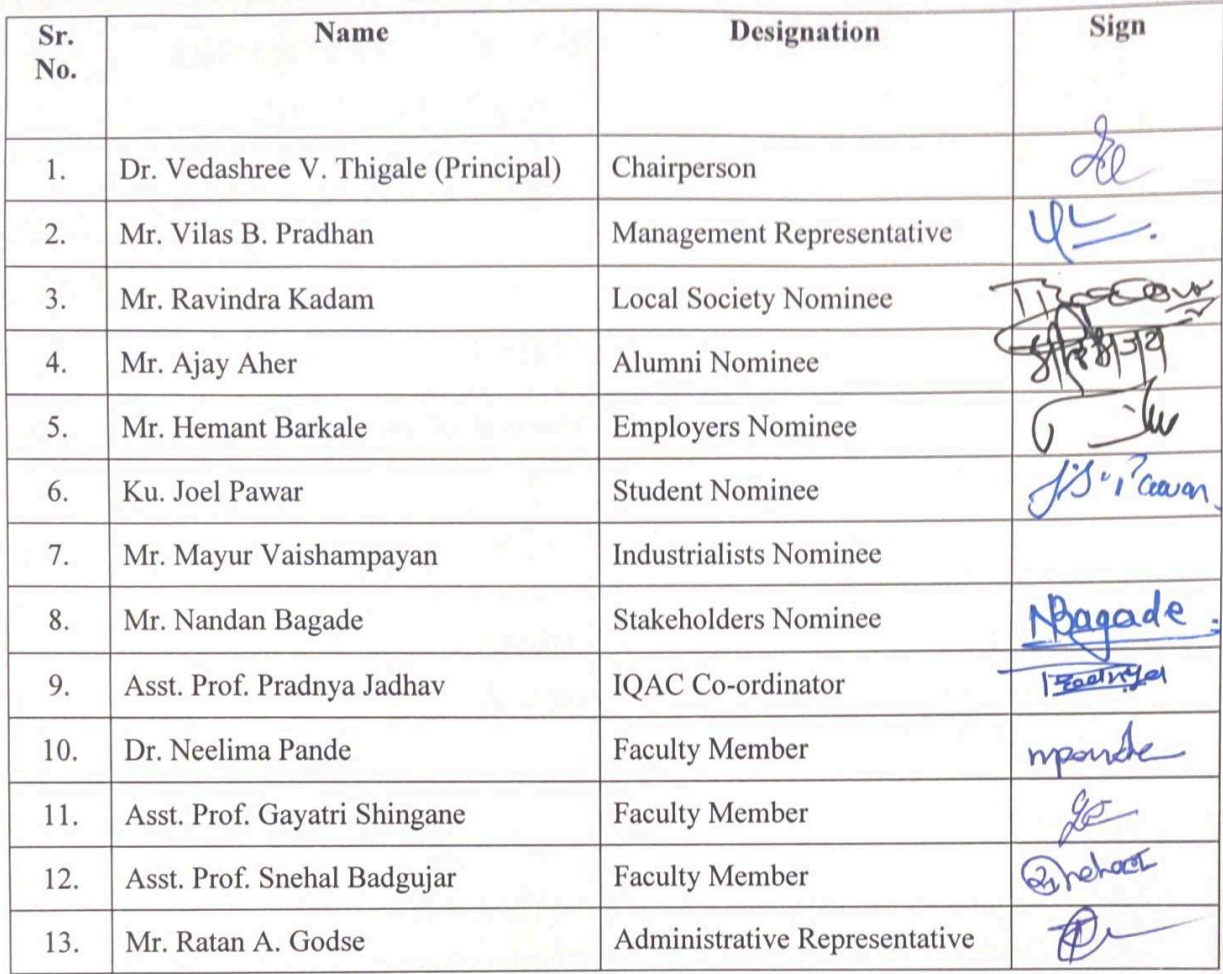 Sr. No. Name Designation Sign
1. Dr. Vedashree V. Thigale (Principal) Chairperson
2. Mr. Vilas B. Pradhan Management Representative
3. Mr. Ravindra Kadam Local Society Nominee
4. Mr. Ajay Aher Alumni Nominee
5. Mr. Hemant Barkale Employers Nominee
6. Ku. Joel Pawar Student Nominee
7. Mr. Mayur Vaishampayan Industrialists Nominee
8. Mr. Nandan Bagade Stakeholders Nominee NBagade
9. Asst. Prof. Pradnya Jadhav IQAC Co-ordinator
10. Dr. Neelima Pande Faculty Member npande
11. Asst. Prof. Gayatri Shingane Faculty Member
12. Asst. Prof. Snehal Badgujar Faculty Member
13. Mr. Ratan A. Godse Administrative Representative